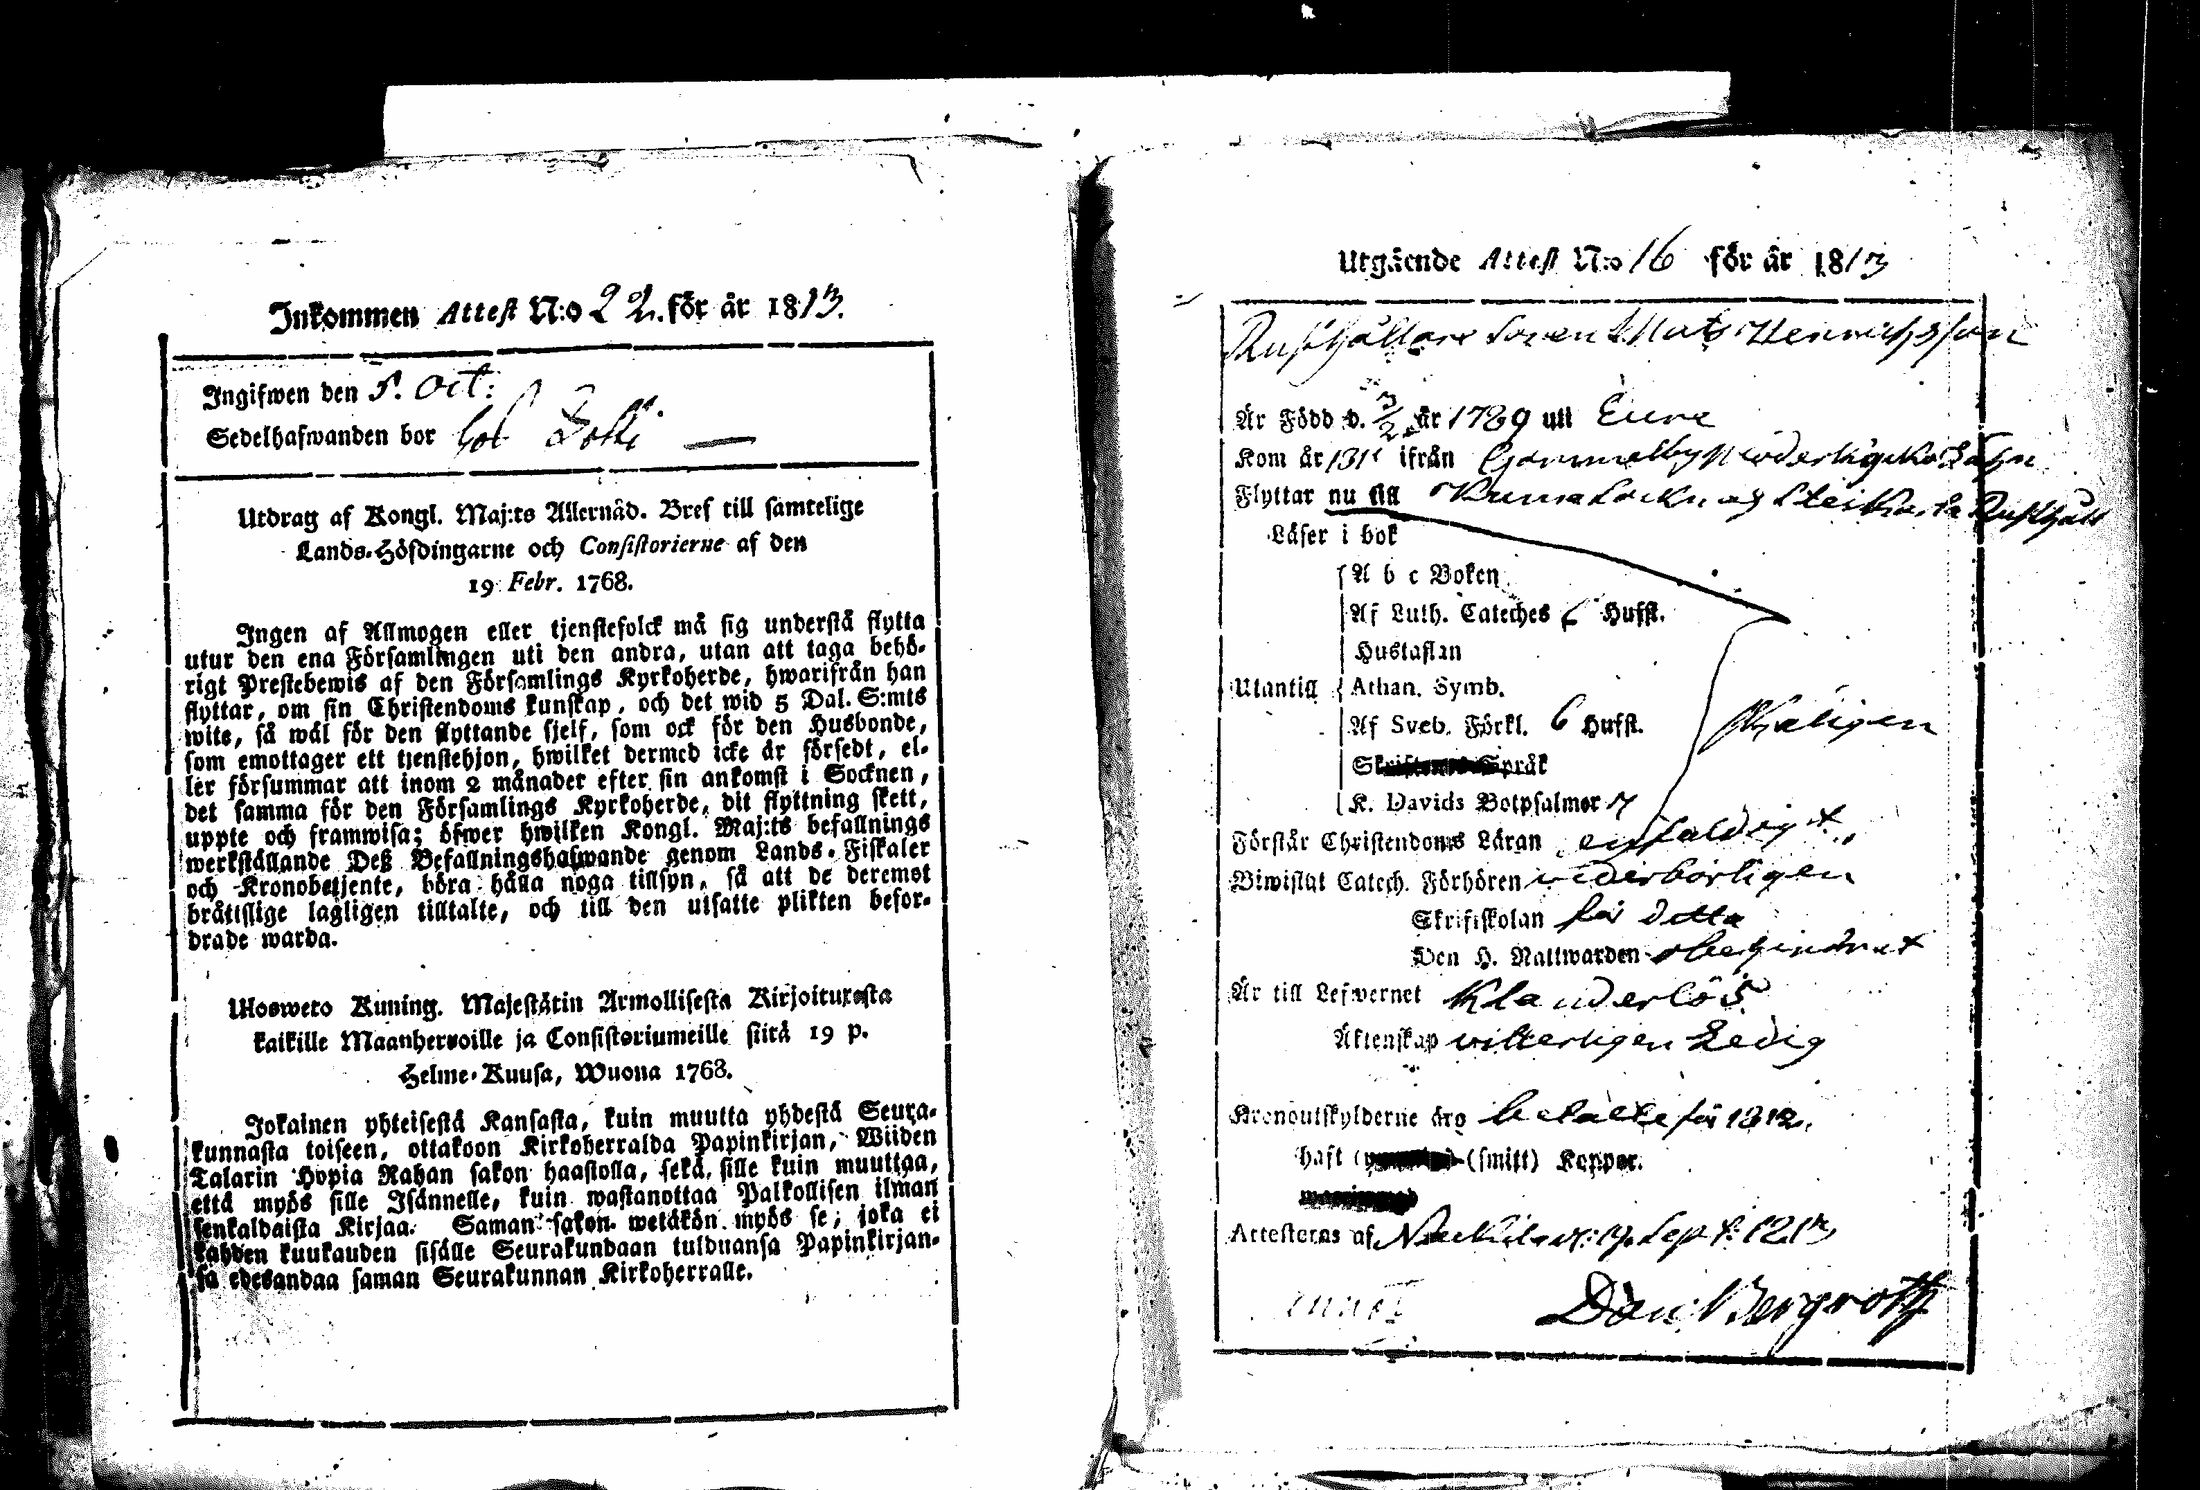 Inkommen Attest N:o 22. för år 1813.
Ingifwen den 5. Oct:
Sedelhafwanden bor hos
Utdrag af Kongl. Maj:ts Allernåd. Bref till samtelige
Lands-Höfdingarne och Consistorierne af den
19 Febr. 1768.
Ingen af Allmogen eller tjenstefolck må sig understå flytta
utur den ena Församlingen uti den andra, utan att taga behö-
rigt Prestebewis af den Församlings Kyrkoherde, hwarifrån han
flyttar, om sin Christendoms kunskap, och det wid 5 Dal. S:mts
wite, så wäl för den flyttande sjelf, som ock för den Husbonde,
som emottager ett tjenstehjon, hwilket dermed icke är försedt, el-
ler försummar att inom 2 månader efter sin ankomst i Socknen,
det samma för den Församlings Kyrkoherde, dit flyttning skett,
uppte och framwisa; öfwer hwilken Kongl. Maj:ts befallnings
werkställande Deß Befallningshafwande genom Lands-Fiskaler
och Kronobetjente, böra hålla noga tillsyn, så att de deremot
bråttslige lagligen tilltalte, och till den utsatte plikten befor-
drade warda.
Ulosweto Kuning. Majestätin Armollisesta Kirjoituxesta
kaikille Maanherroille ja Consistoriumeille siitä 19 p.
Helme-Kuusa, Wuona 1768.
Jokainen yhteisestä Kansasta, kuin muutta yhdestä Seura-
kunnasta toiseen, ottakoon Kirkoherralda Papinkirjan, Wiiden
Talarin Hopia Rahan sakon haastolla, sekä sille kuin muuttaa,
että myös sille Isännelle, kuin wastanottaa Palkollisen ilman
senkaldaista Kirjaa. Saman sakon wetäkön myös se, joka ei
kahden kuukauden sisälle Seurakundaan tulduansa Papinkirjan-
sa edesandaa saman Seurakunnan Kirkoherralle.
Utgående Attest N:o 16 för år 1813
Rusthållare Sonen Mats Henrichsson
Är Född d. 3/2 år 1789 uti Eura
Kom år ifrån Gammelby
Flyttar nu till Rusthåll
Läser i bok
A b c Boken
Af Luth. Cateches 6 Hufst.
Hustaflan
Utantill Athan. Symb.
Af Sveb. Förkl. 6 Hufst.
Språk
K. Davids Botpsalmer 7
Förstår Christendoms Läran enfaldigt
Biwistat Catech. Förhören wederbörligen
Skriftskolan för detta
Den H. Nattwarden obehindrat
Är till Lefwernet Klanderlös
Äktenskap witterligen Ledig
Kronoutskylderne äro betalte för 1812.
haft (smitt) Koppor.
Attesteras af Sept: 1813
Dan: Bergroth